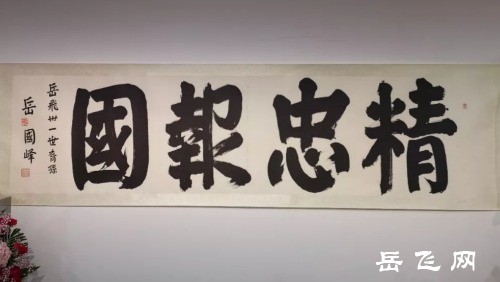 精忠報國
岳飛卅一世裔孫
岳國峰
岳飞网